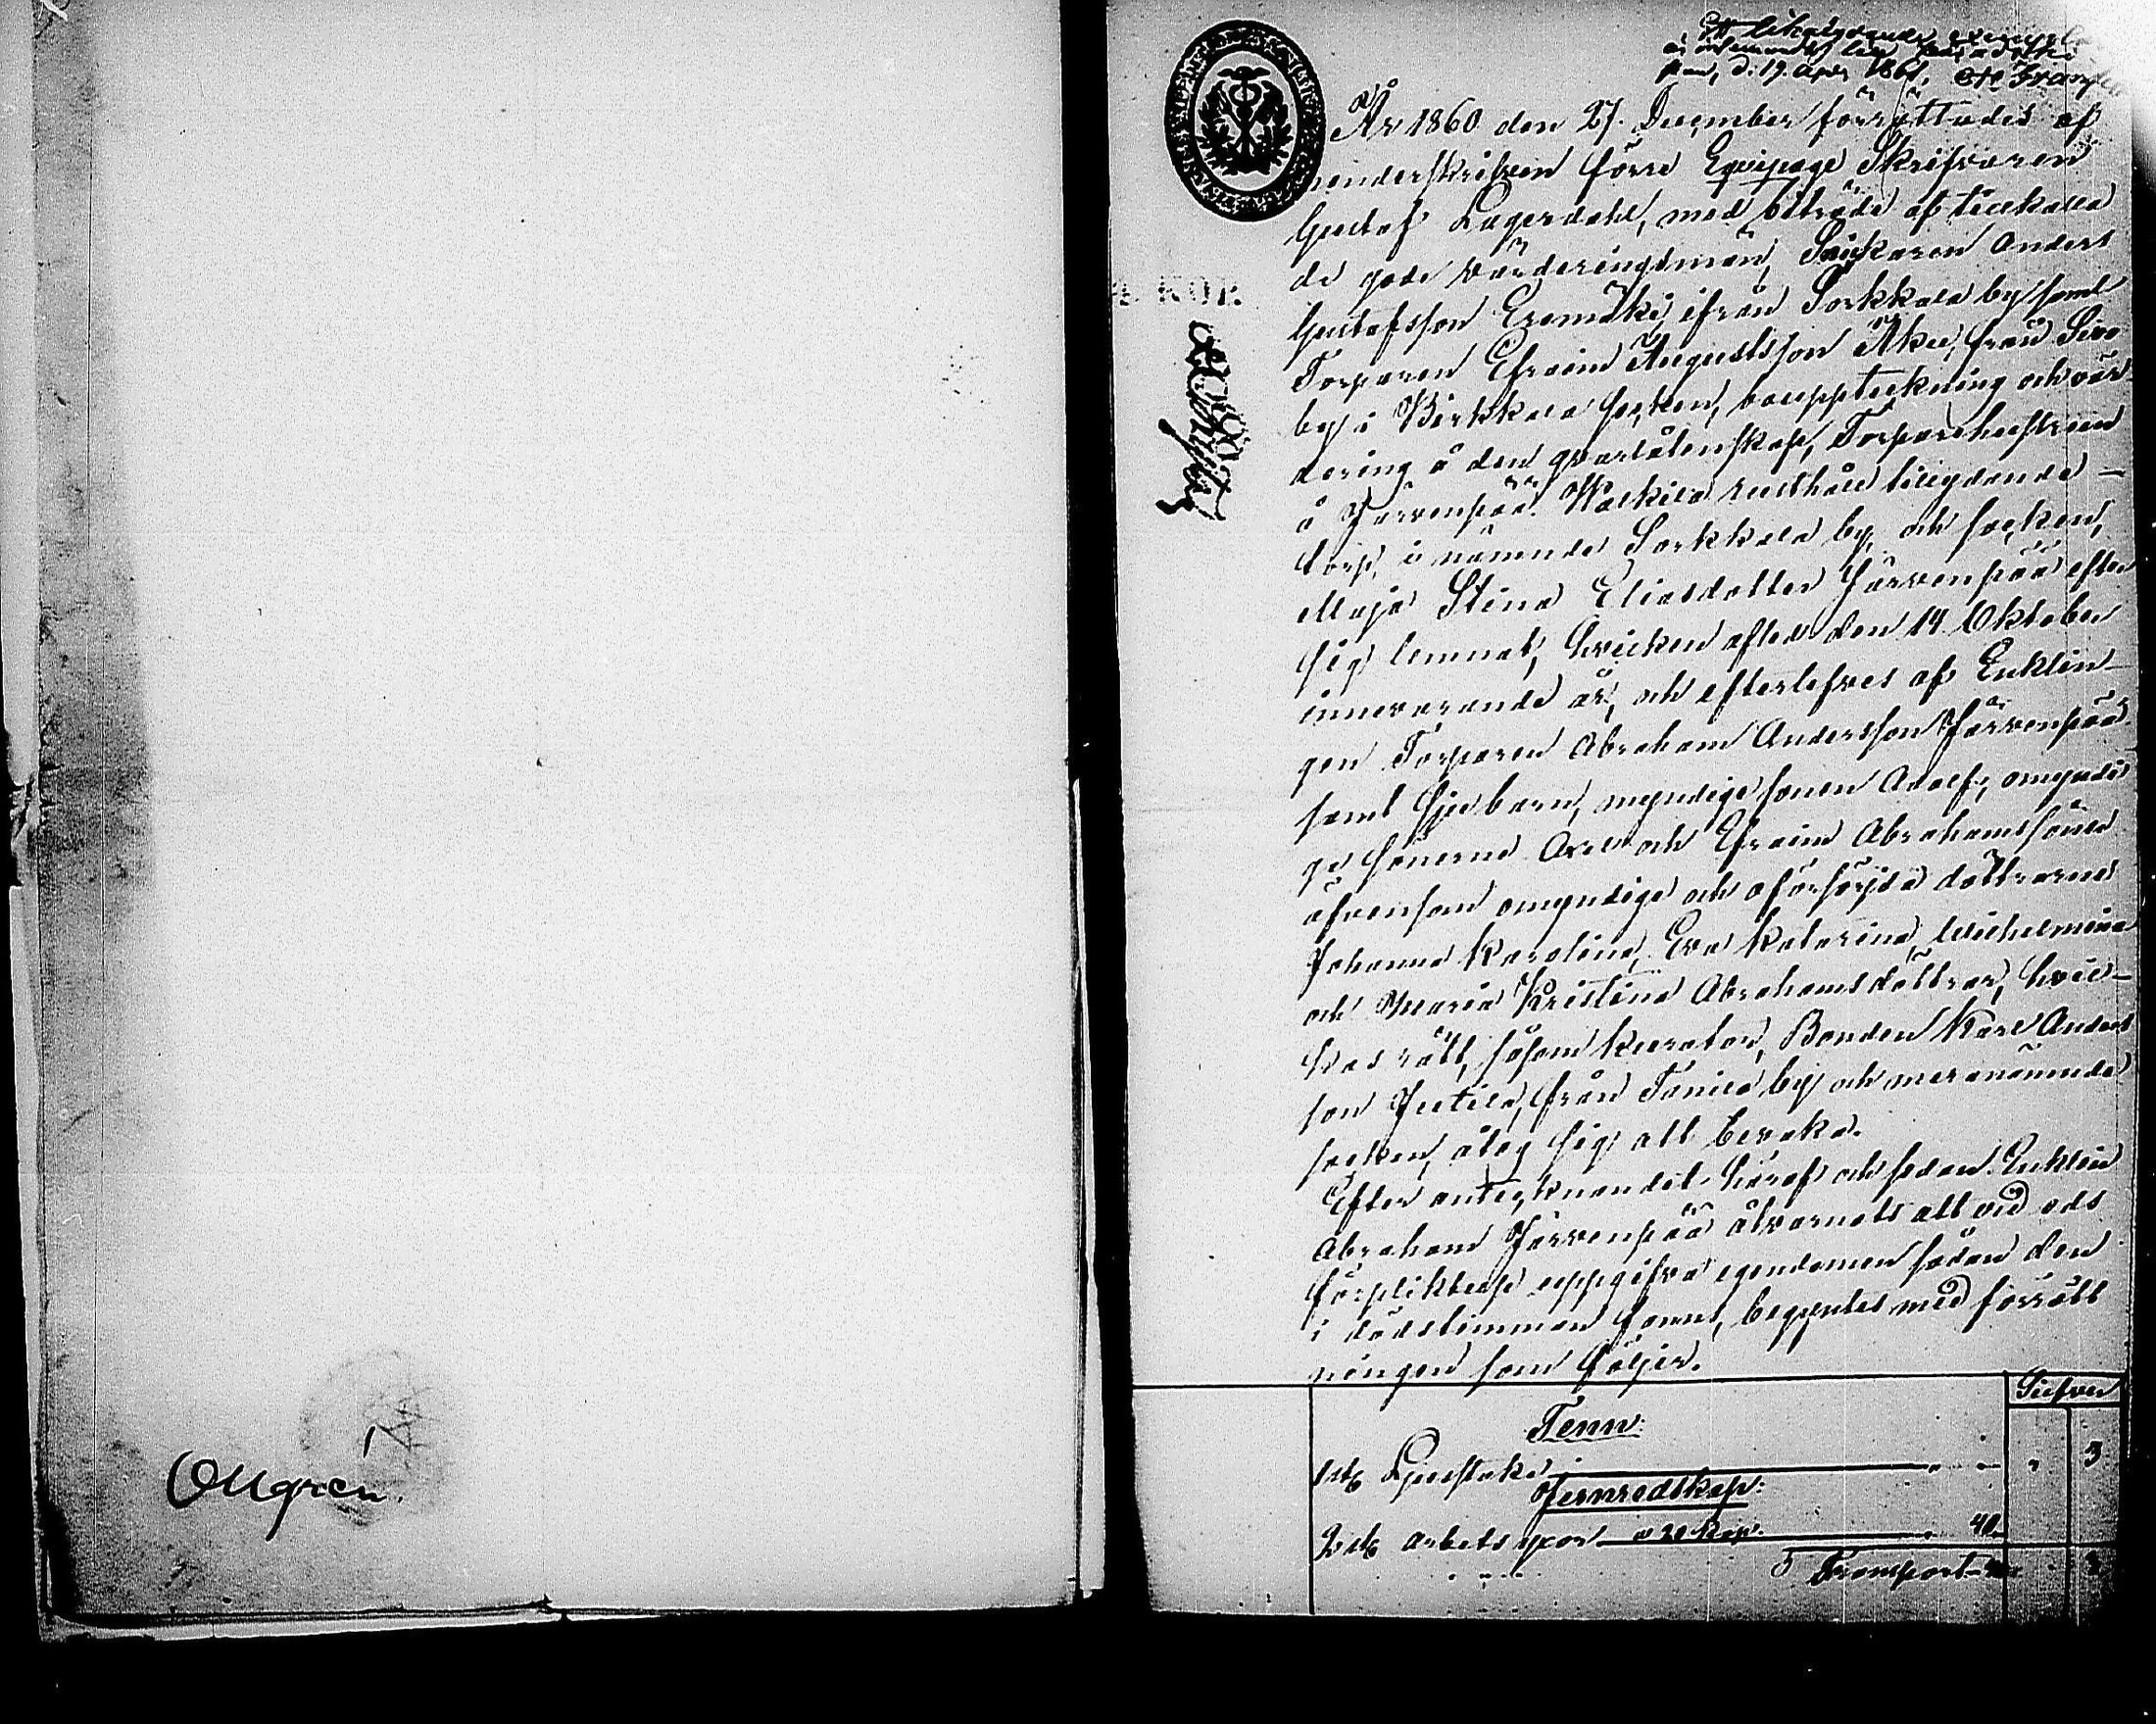 Ollgren.
Ett likalydande exemplar
är inlemnadt
d. 19 April 1861.
4. KOP.
År 1860 den 27. December förrättades af
underskrifven förre Eqvipage Skrifvaren
Gustaf Lagerdahl, med biträde af tillkalla
de gode värderingsmän, Snickaren Anders
Gustafsson Eremäki, ifrån Sorkkala by samt
Torparen Efraim Augustsson Äkee, från Siro
by i Birkkala socken, bouppteckning och vär
dering å den qvarlåtenskap, Torparehustrun
å Järvenpää Walkila rusthåll lydande
torp, i nämnde Sorkkala by, och socken,
Maja Stina Eliasdotter Järvenpää efter
sig lemnat, hvilken afled den 14 Oktober
innevarande år, och efterlefves af Enklin-
gen Torparen Abraham Andersson Järvenpää
samt sju barn, myndige sonen Adolf, omyndi
ge sönerne Axel och Efraim Abrahamssöner
äfvensom omyndige och oförsörjda döttrarne
Johanna Karolina, Eva Katarina, Wilhelmina
och Maria Kristina Abrahamsdöttrar, hvil-
kas rätt, såsom kurator, Bonden Karl Anders
son Juttila, från Tanila by och meranämnde
socken, åtog sig att bevaka.
Efter antecknandet häraf och sedan Enklin
Abraham Järvenpää åtvarnats att vid eds
förpliktelse uppgifva egendomen sådan den
i dödstimman fanns, begyntes med förrätt
ningen som följer.
Silfver
Tenn:
1 st. Ljusstake 3
Jernredskap:
2 st. arbets yxor a 20 kop. 40
Transport